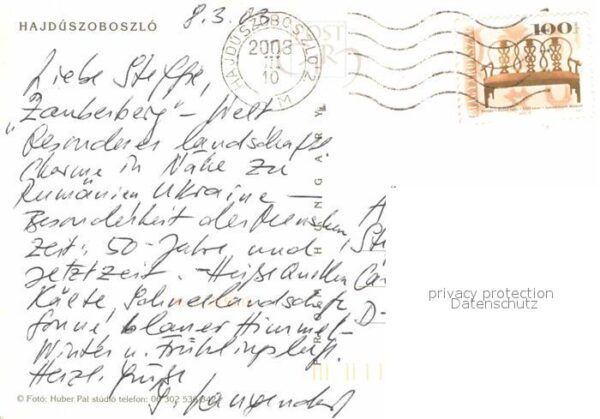 HAJDÚSZOBOSZLÓ
8.3.03
HAJDÚSZOBOSZLÓ 2
2003 III 10
100
Liebe Steffie,
"Zauberberg" – Welt
Besonderes landschaftl.
Charme in Nähe zu
Rumänien Ukraine –
Besonderheit der Menschen,
Zeit, 50-Jahre und
Jetztzeit. – Heiße Quellen
Kälte, Schneelandschaft,
Sonne, blauer Himmel –
Winter u. Frühlingsluft.
Herzl. Grüße
HUNGARY
D-
privacy protection
Datenschutz
© Fotó: Huber Pál stúdió telefon: 06 302 538